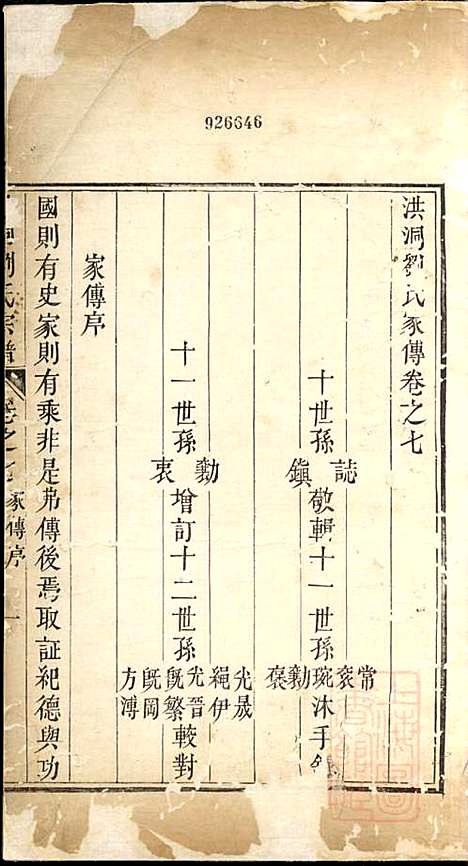 926646
洪洞劉氏家傳卷之七
十世孫 誌 鎮 敬輯十一世孫 常 袞 琬 勷 褒 沐手
十一世孫 勷 衷 增訂十二世孫 光晟 繩伊 光晉 旣繁 旣岡 方溥 較對
家傳序
國則有史家則有乘非是弗傳後焉取証紀德與功
劉氏宗譜 卷之七 家傳序 一